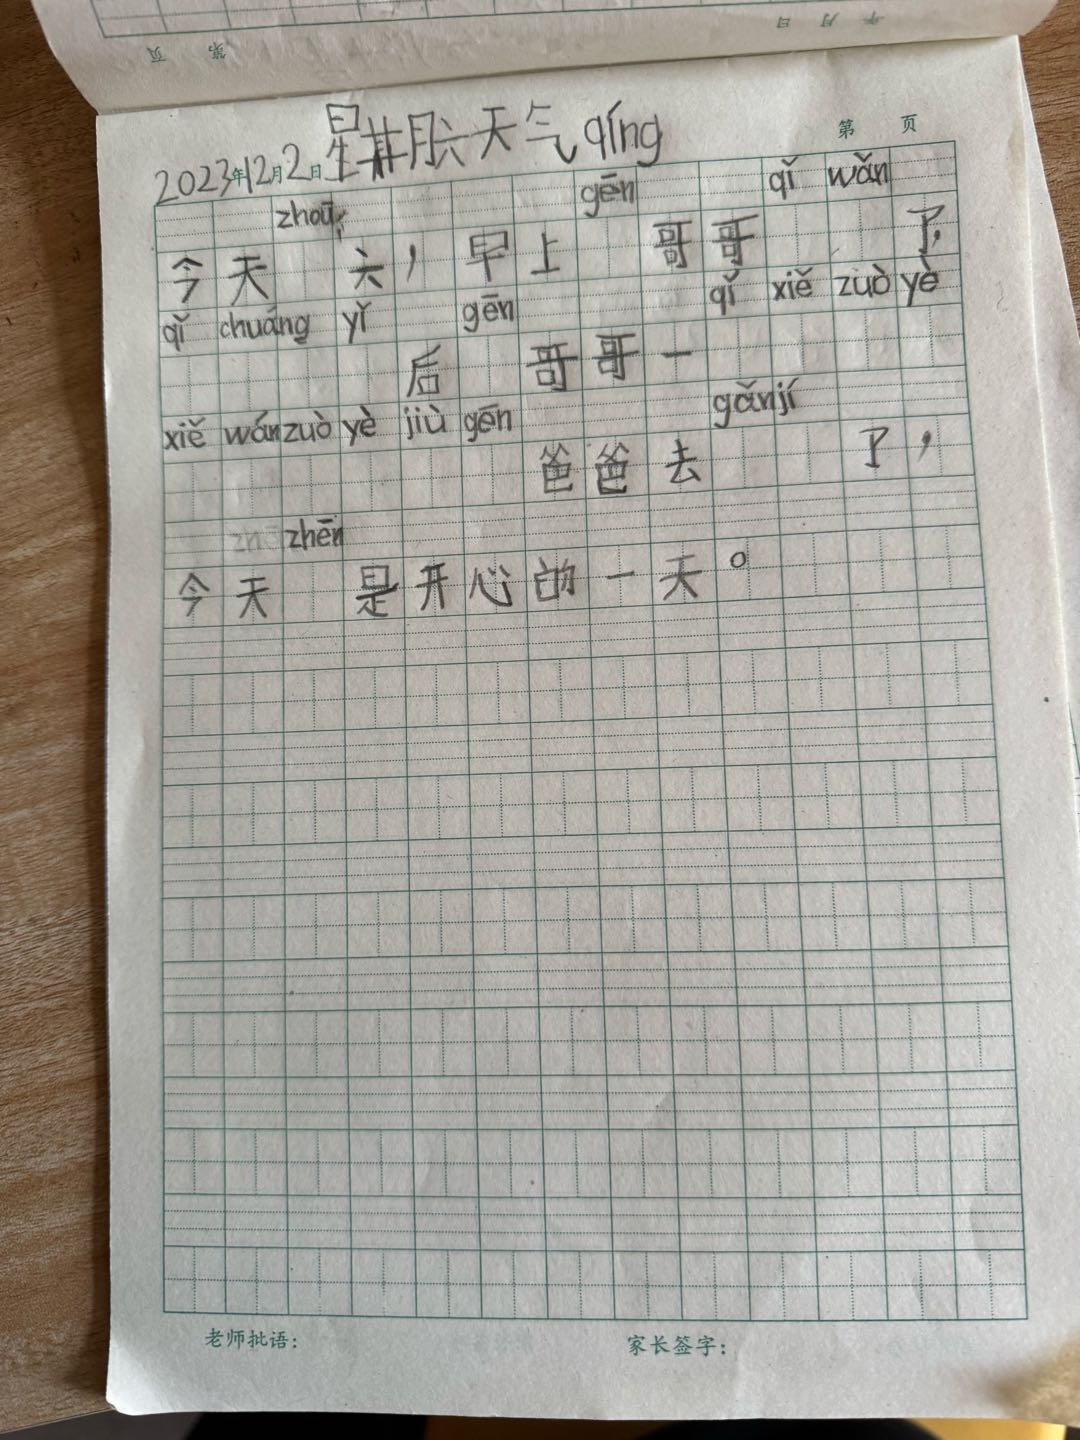 年 月 日
第 页
2023年12月2日星期六天气qíng
第 页
zhōu gēn qǐ wǎn
今天 六，早上 哥哥 了，
qǐ chuáng yǐ gēn qǐ xiě zuò yè
后 哥哥一
xiě wán zuò yè jiù gēn gǎn jí
爸爸去 了，
zhēn
今天 是开心的一天。
老师批语：
家长签字：